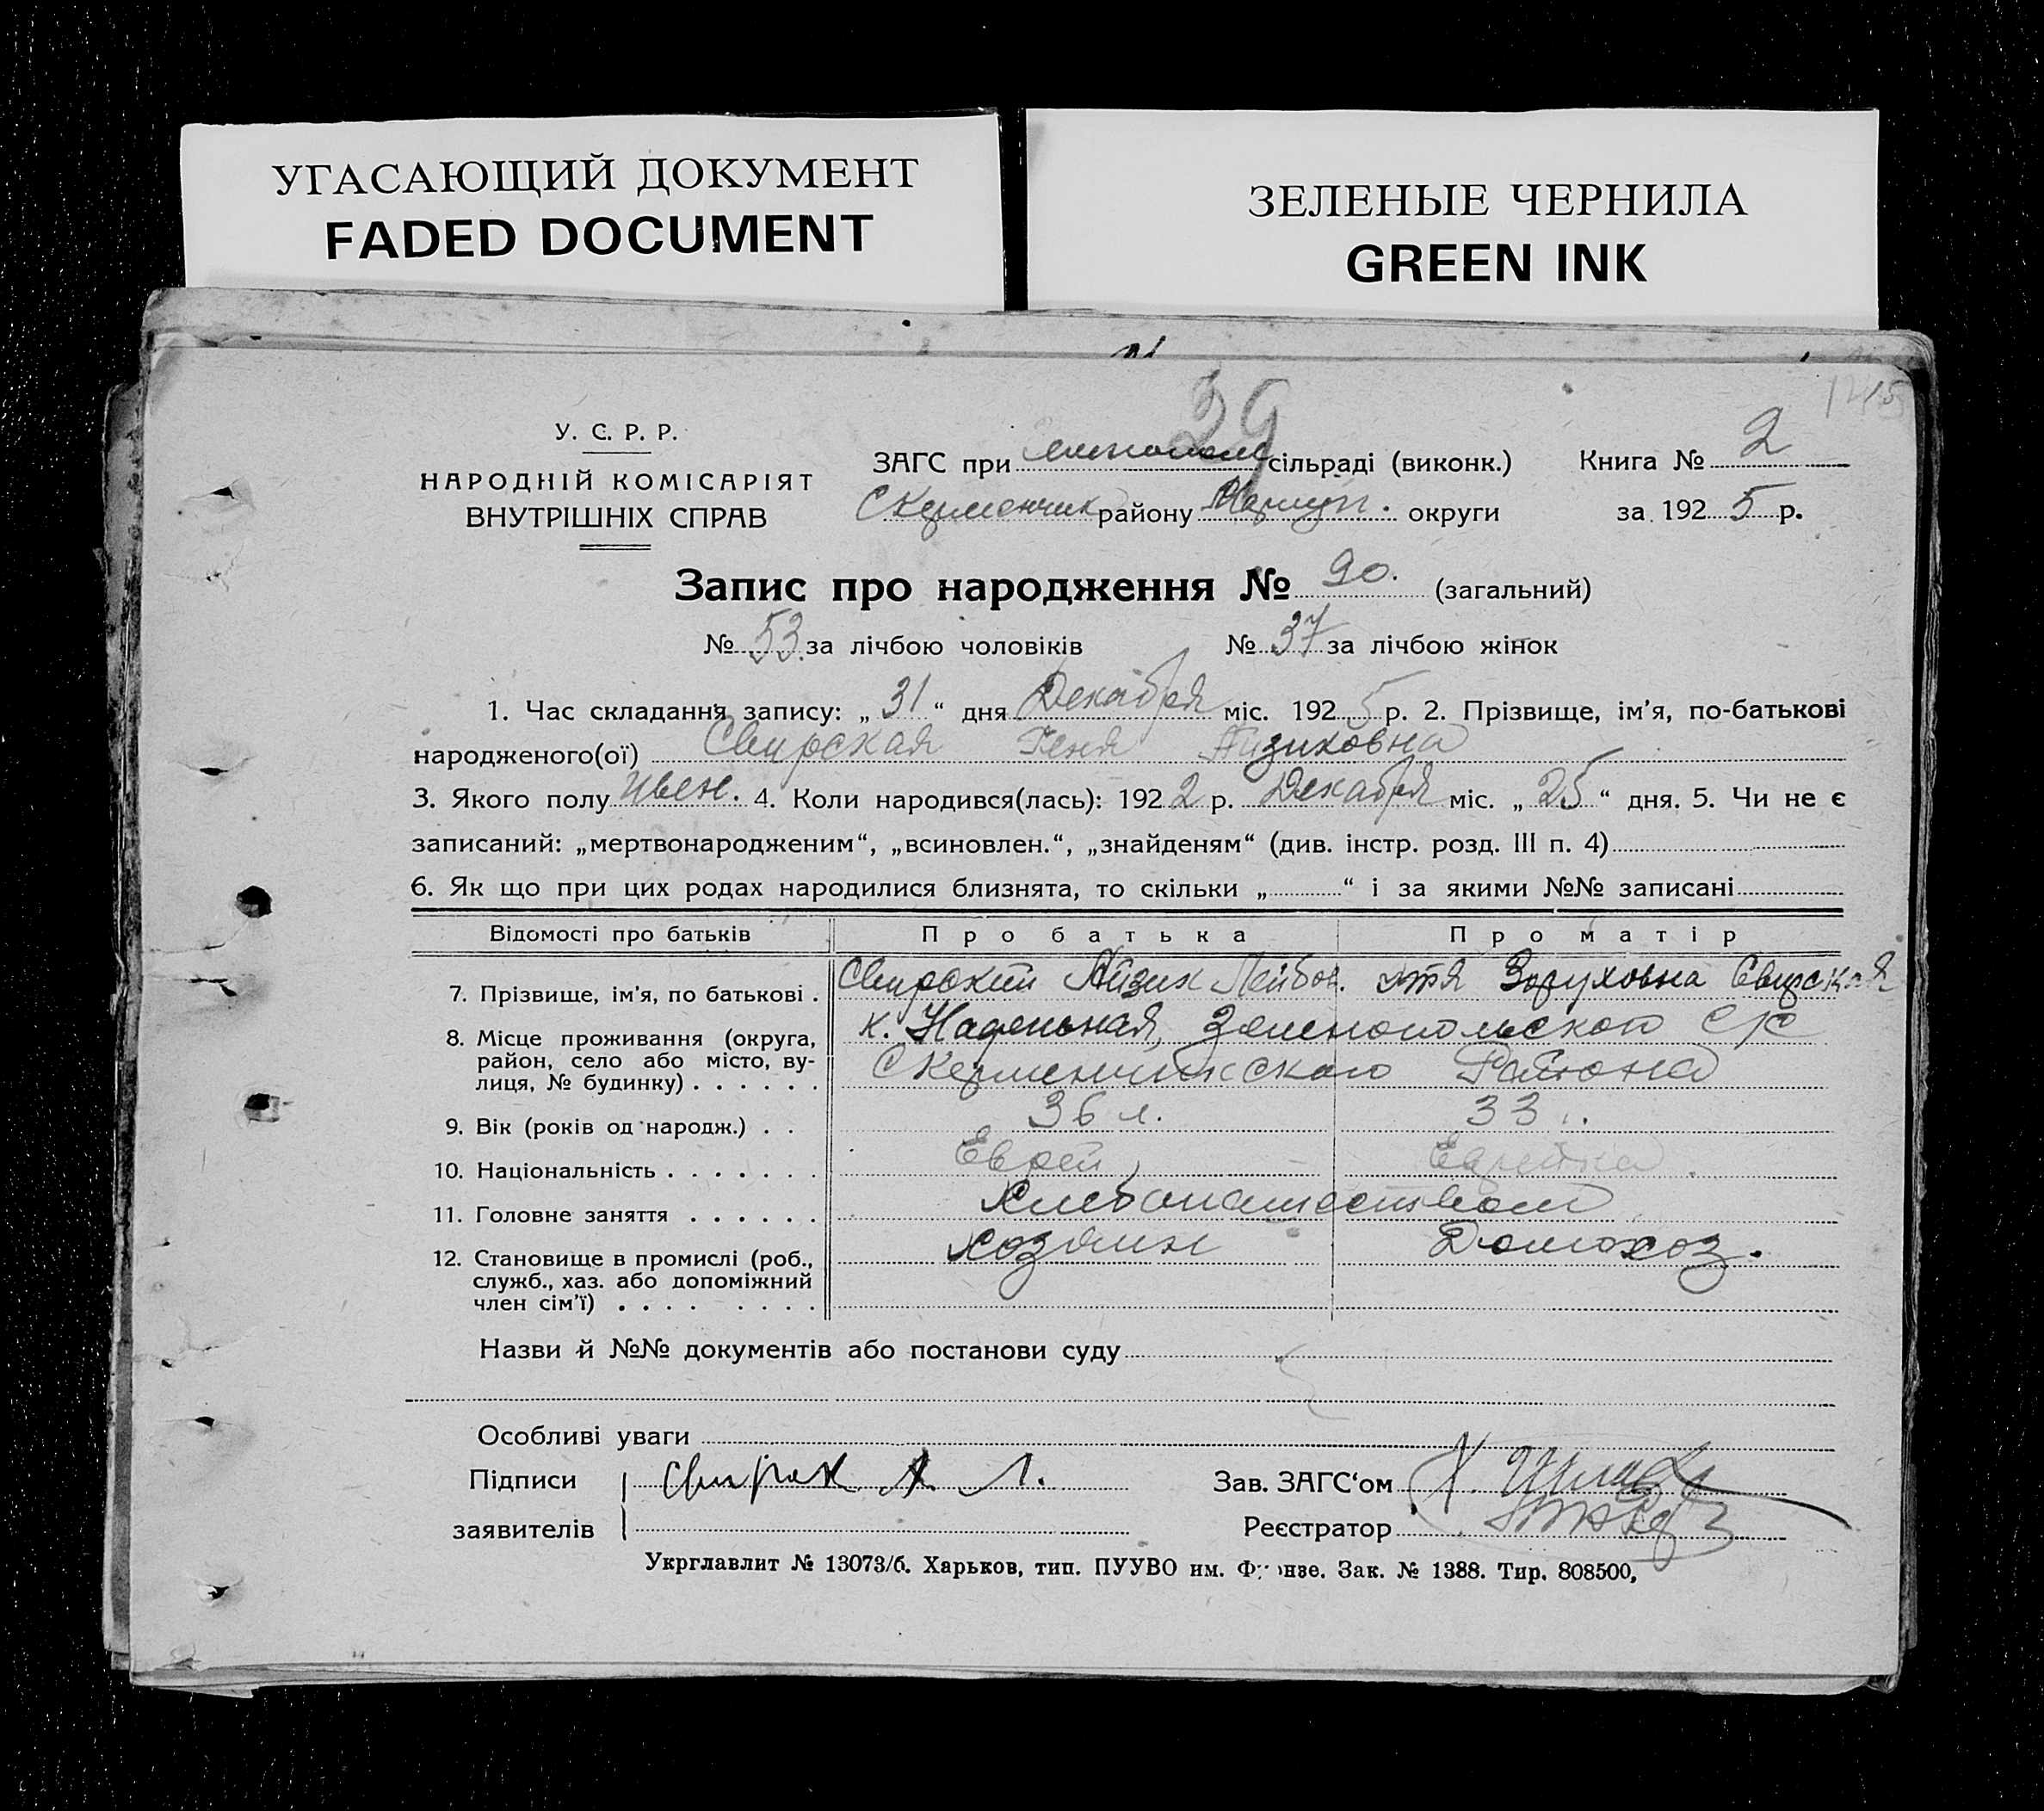 УГАСАЮЩИЙ ДОКУМЕНТ
FADED DOCUMENT
ЗЕЛЕНЫЕ ЧЕРНИЛА
GREEN INK
29
У. С. Р. Р.
НАРОДНІЙ КОМІСАРІЯТ
ВНУТРІШНІХ СПРАВ
ЗАГС при сільраді (виконк.) Книга № 2
С Керменчик району Мариуп. округи за 1925 р.
Запис про народження № 90. (загальний)
№ 53. за лічбою чоловіків № 37 за лічбою жінок
1. Час складання запису: „ 31 “ дня Декабря міс. 1925 р. 2. Прізвище, ім’я, по-батькові
народженого(ої) Свирская Геня Айзиковна
3. Якого полу жен. 4. Коли народився(лась): 1922 р. Декабря міс. „ 25 “ дня. 5. Чи не є
записаний: „мертвонародженим“, „всиновлен.“, „знайденям“ (див. інстр. розд. III п. 4)
6. Як що при цих родах народилися близнята, то скільки „ “ і за якими №№ записані
Відомості про батьків Про батька Про матір
7. Прізвище, ім’я, по батькові . Свирский Айзик Лейбов. Свирская
8. Місце проживання (округа, район, село або місто, вулиця, № будинку) . . . . . . к. Надельная, Зеленопольского С/С
С Керменчикского Района
9. Вік (років од народж.) . . 36 л. 33
10. Національність . . . . . . . Еврей, Еврейка.
11. Головне заняття . . . . . . Хлебопашеством
12. Становище в промислі (роб., служб., хаз. або допоміжний член сім’ї) . . . . . . . . Хозяин Домохоз.
Назви й №№ документів або постанови суду
Особливі уваги
Підписи заявителів Свирск А Л.
Зав. ЗАГС‘ом
Реєстратор
Укрглавлит № 13073/б. Харьков, тип. ПУУВО им. Фрунзе. Зак. № 1388. Тир. 808500,